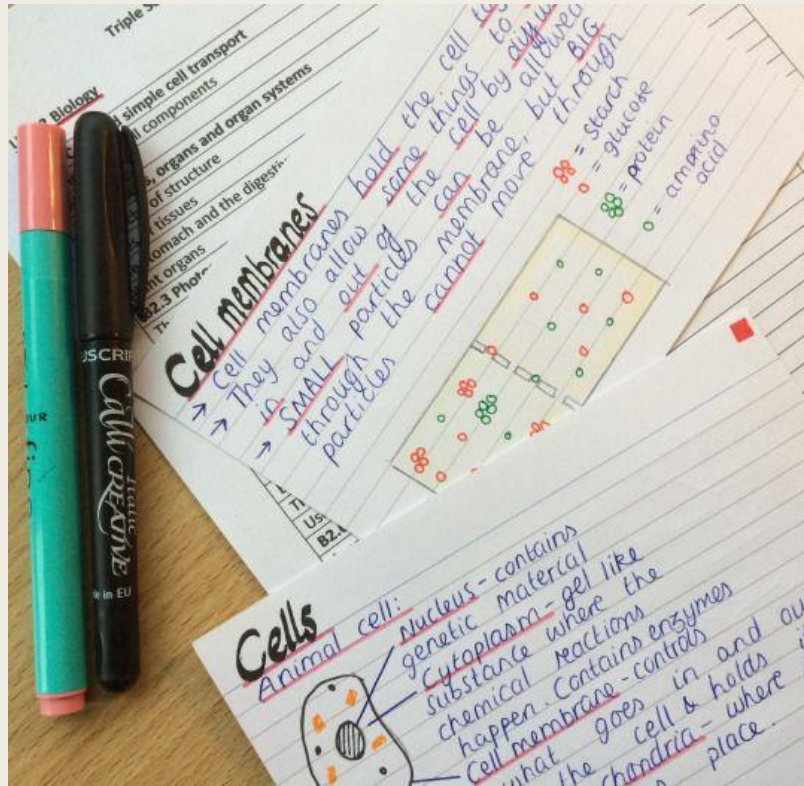 Triple
Biology
simple cell transport
components
organs and organ systems
of structure
tissues
and the
organs
B2.3
Cell membranes
→ Cell membranes hold the cell
→ They also allow some things to
in and out of the cell by
→ SMALL particles can be allowed
through the membrane, but BIG
particles cannot move through
= starch
= glucose
= protein
= amino
acid
USCRI
Italic
CalliCREATIVE
in EU
B2.
Cells
Animal cell:
Nucleus - contains
genetic material
Cytoplasm - gel like
substance where the
chemical reactions
happen. Contains enzymes
Cell membrane - controls
what goes in and
the cell & holds
chondria - where
place.